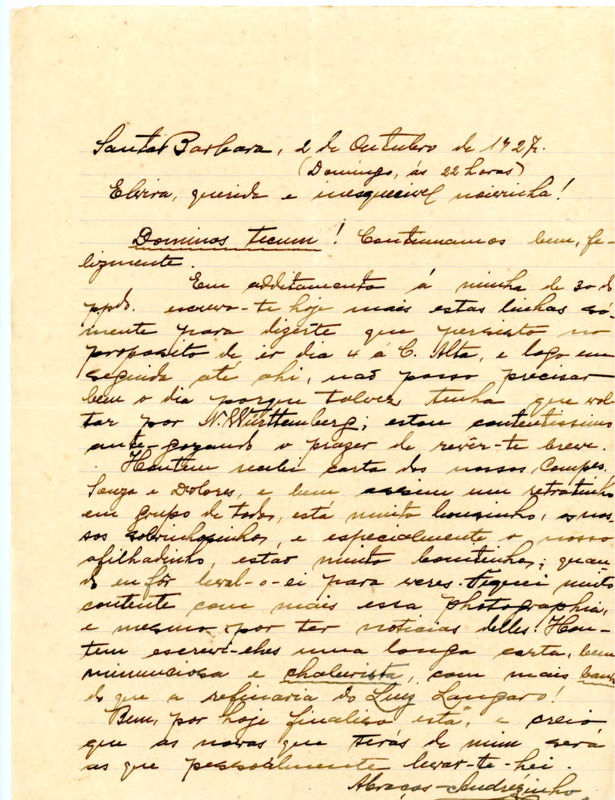 Santa Barbara, 2 de Outubro de 1927.
(Domingo, ás 22 horas)
Elvira, querida e inesquecivel noivinha!
Dominos tecum! Continuamos bem, fe-
lizmente.
Em additamento á minha de 30 do
ppdo. escrevo-te hoje mais estas linhas so-
mente para dizerte que persisto no
proposito de ir dia 4 á C. Alta, e logo em
seguida até ahi, não posso precisar
bem o dia porque talvez tenha que vol-
tar por N. Württemberg; estou contentissimo
ante-gozando o prazer de revêr-te breve.
Hontem recebi carta dos nossos Compes.
Souza e Dolores, e bem assim um retratinho
em grupo de todos, está muito bonzinho, os nos-
sos sobrinhosinhos, e especialmente o nosso
afilhadinho, estão muito bonitinhos; quan-
do eu fôr leval-o-ei para veres. Fiquei muito
contente com mais essa photographia,
e mesmo por ter noticias delles. Hon-
tem escrevi-lhes uma longa carta, bem
minunciosa e chaleirista, com mais
do que a refinaria do Luiz Langaro!
Bem, por hoje finaliso esta, e creio
que as novas que terás de mim será
as que pessoalmente levar-te-hei.
Abraços - Andrézinho